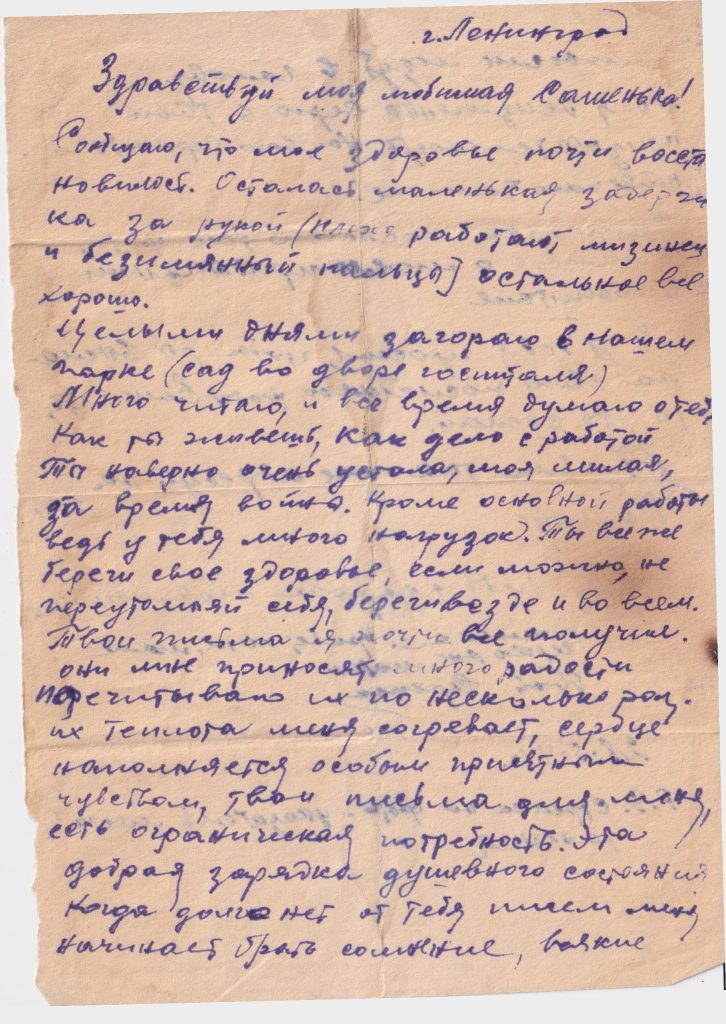 г. Ленинград
Здравствуй моя любимая Сашенька!
Сообщаю, что мое здоровье почти восста
новилост. Осталаст маленькая задерж
ка за рукой (плохо работают мизинец
и безимянный пальцы) остальное все
хорошо.
Целыми днями загораю в нашем
парке (сад во дворе госпиталя)
Много читаю, и все время думаю о тебе
Как ты живешь, как дело с работой
Ты наверно очень устала, моя милая,
за время войны. Кроме основной работы
ведь у тебя много нагрузок. Ты все же
береги свое здоровье, если можно, не
переутомляй себя, береги везде и во всем.
Твои письма я почти все получил.
они мне приносят много радости
перечитываю их по несколько раз.
их теплота меня согревает, сердце
наполняется особым приятным
чувством, твои письма для меня,
есть ограническая потребность. Эта
добрая зарядка душевного состояния
Когда долго нет от тебя писем меня
начинает брать сомнение, всякие